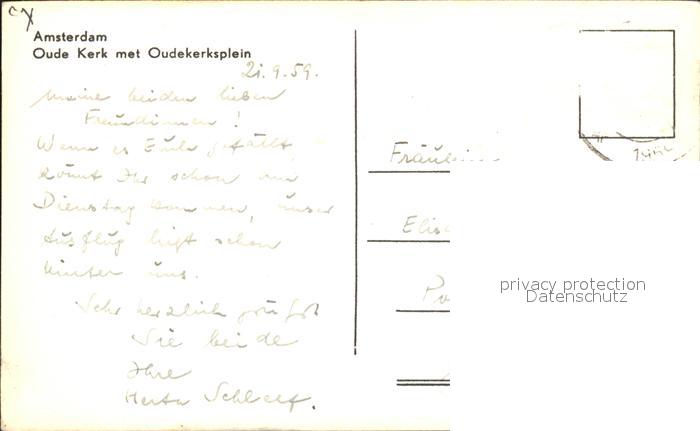 Amsterdam
Oude Kerk met Oudekerksplein
21.9.59.
Meine beiden lieben
Freundinnen!
Wenn es Euch gefällt,
könnt Ihr schon am
Dienstag kommen, unser
Ausflug liegt schon
hinter uns.
Sehr herzlich grüßt
Sie beide
Ihre
Herta
Fräulein
Elis
privacy protection
Datenschutz